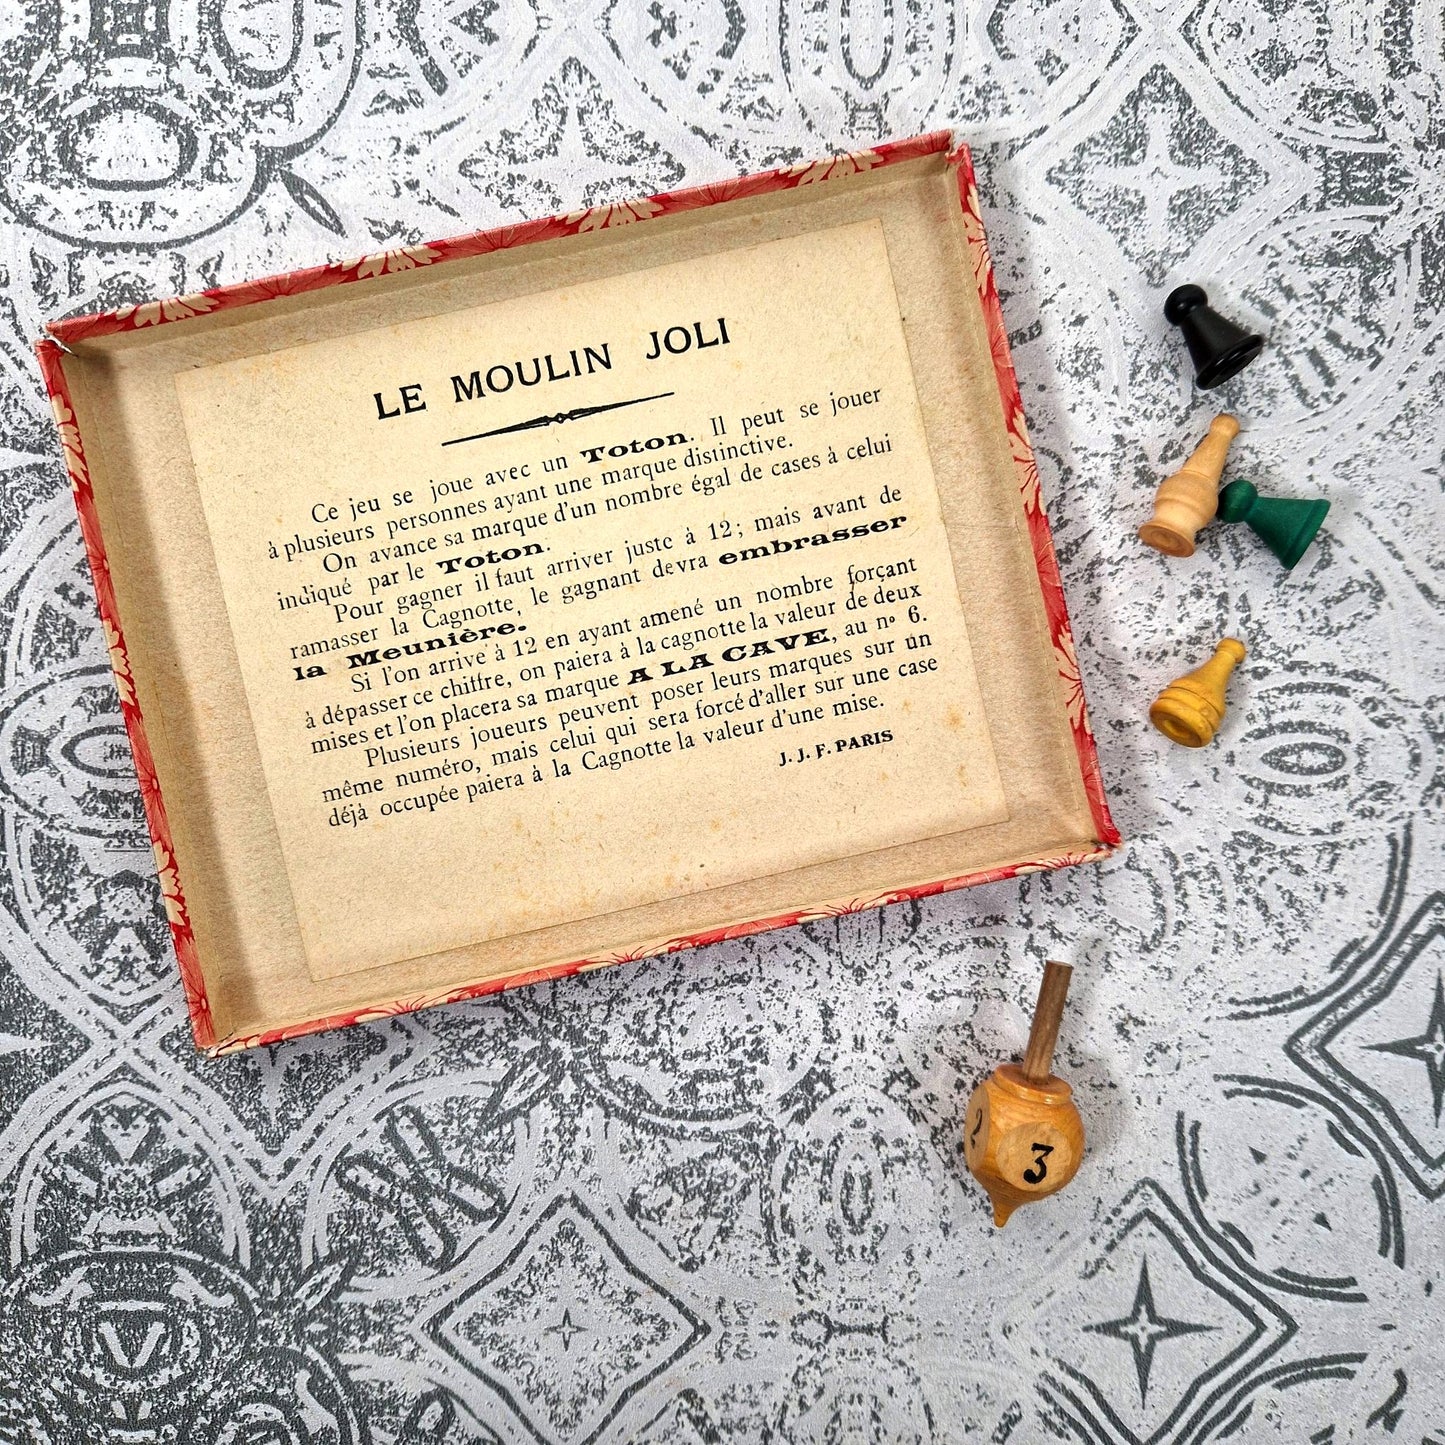 LE MOULIN JOLI
Ce jeu se joue avec un Toton. Il peut se jouer
à plusieurs personnes ayant une marque distinctive.
On avance sa marque d'un nombre égal de cases à celui
indiqué par le Toton.
Pour gagner il faut arriver juste à 12; mais avant de
ramasser la Cagnotte, le gagnant devra embrasser
la Meunière.
Si l'on arrive à 12 en ayant amené un nombre forçant
à dépasser ce chiffre, on paiera à la cagnotte la valeur de deux
mises et l'on placera sa marque A LA CAVE, au nº 6.
Plusieurs joueurs peuvent poser leurs marques sur un
même numéro, mais celui qui sera forcé d'aller sur une case
déjà occupée paiera à la Cagnotte la valeur d'une mise.
J. J. F. PARIS
2
3